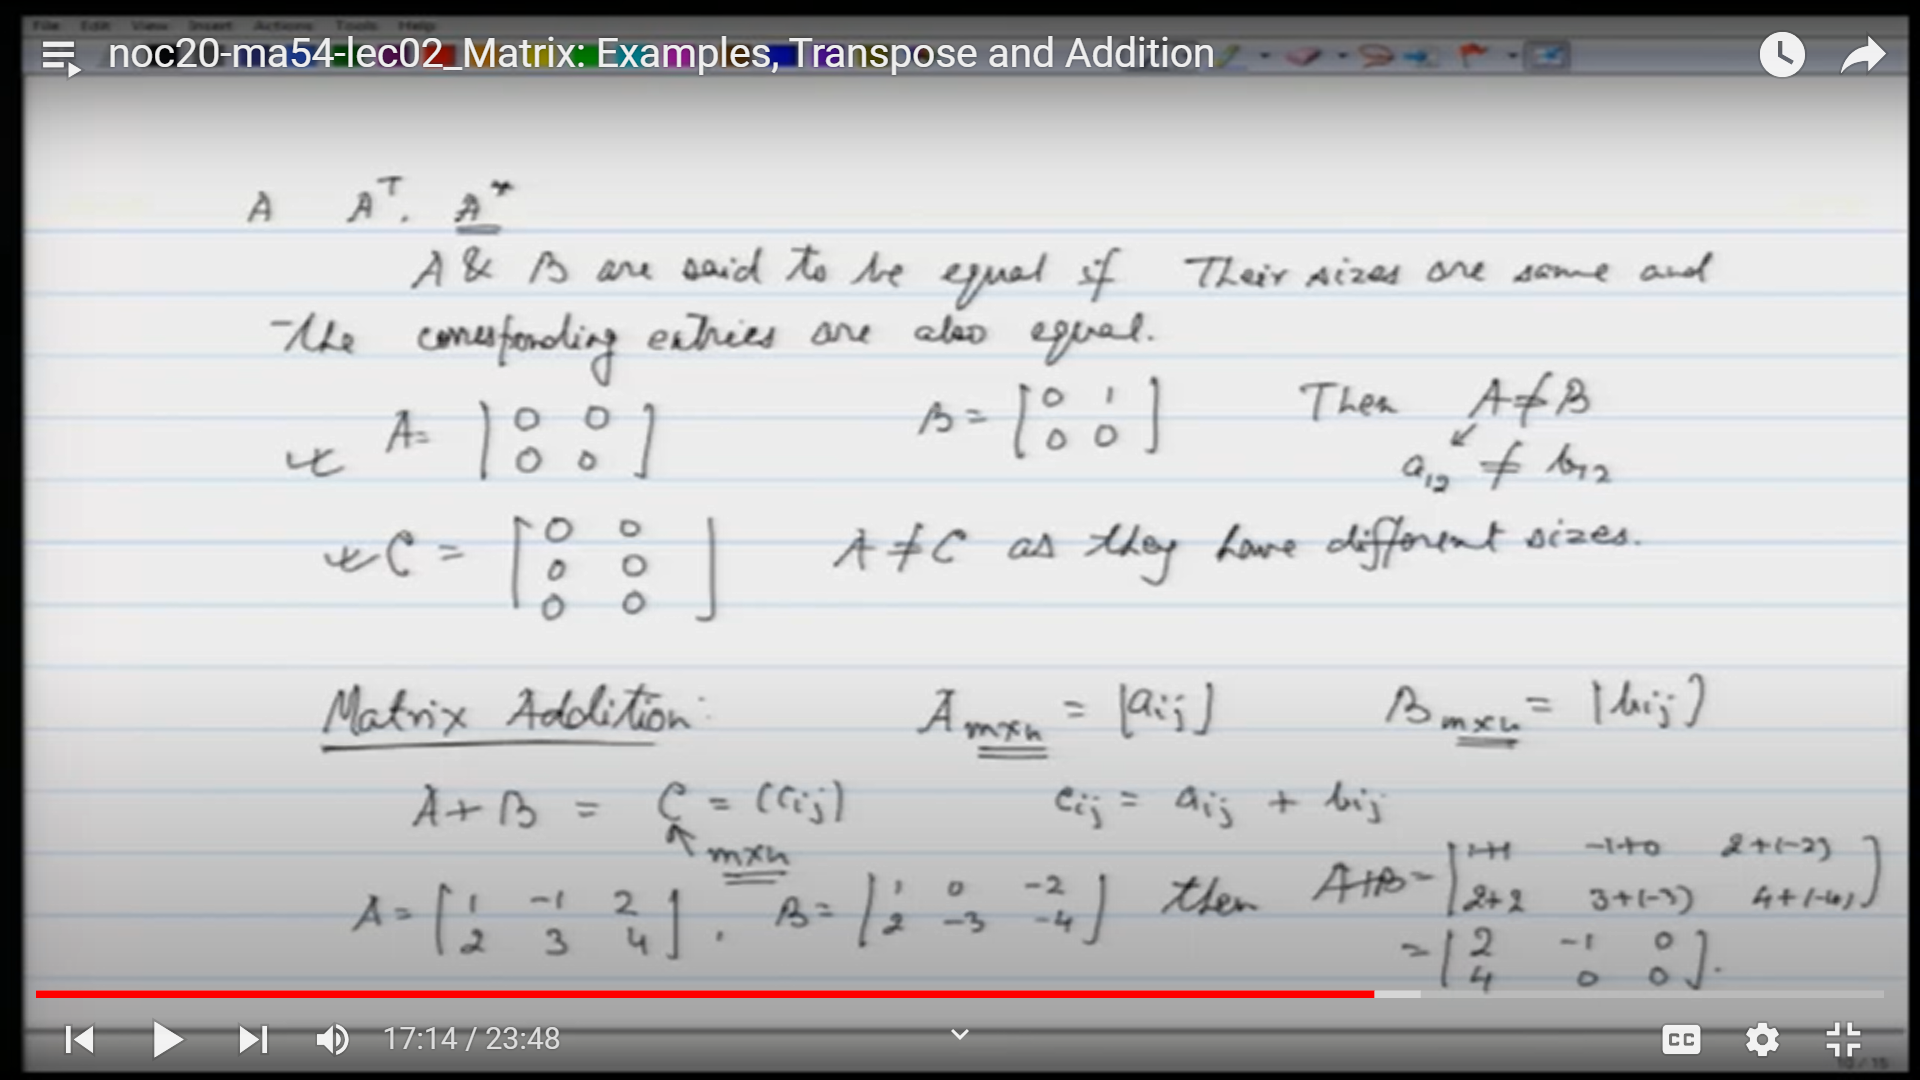 File Edit View Insert Actions Tools Help
noc20-ma54-lec02_Matrix: Examples, Transpose and Addition
A Aᵀ. A*
A & B are said to be equal if Their sizes are same and
the corresponding entries are also equal.
A = [0 0; 0 0] B = [0 1; 0 0] Then A ≠ B
a₁₂ ≠ b₁₂
C = [0 0; 0 0; 0 0] A ≠ C as they have different sizes.
Matrix Addition: A m×n = [aij] B m×n = [bij]
A + B = C = (cij) cij = aij + bij
m×n
A = [1 -1 2; 2 3 4], B = [1 0 -2; 2 -3 -4] then A+B = [1+1 -1+0 2+(-2); 2+2 3+(-3) 4+(-4)]
= [2 -1 0; 4 0 0].
17:14 / 23:48
CC
10 / 15